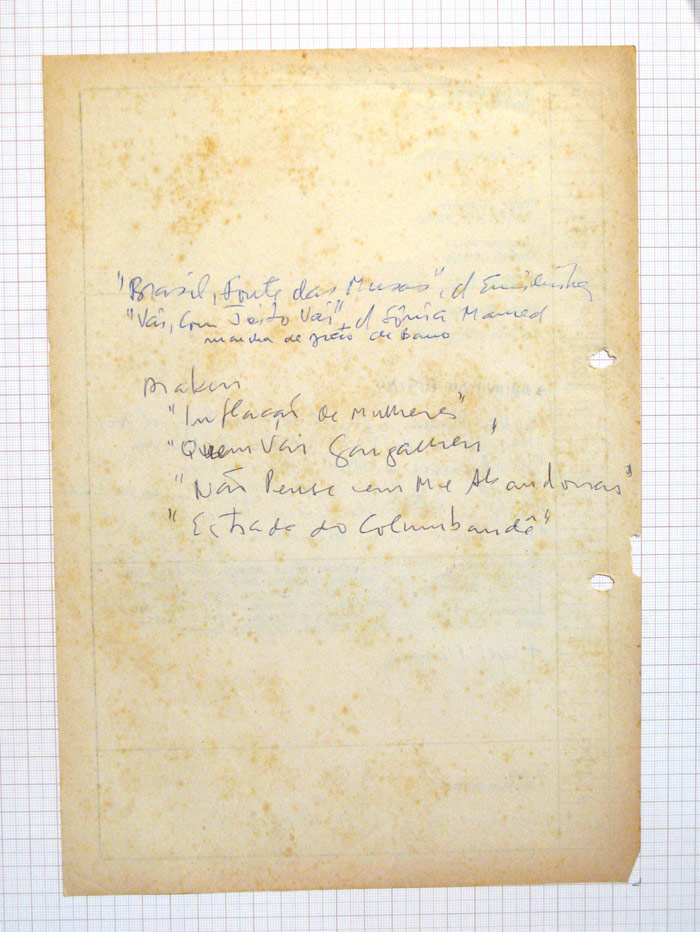 "Brasil, Fonte das Musas", c/ Emilinha
"Vai, Com Jeito Vai", c/ Sônia Mamed
marcha de João de Barro
Araken
"Inflação de Mulheres"
"Quem Vai Gargalhei"
"Não Pense em Me Abandonar"
"Estrada do Columbandê"